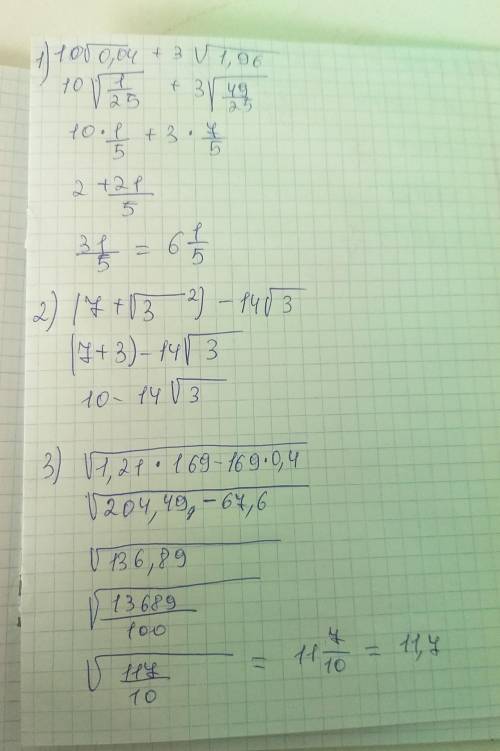 1) 10√0,04 + 3√1,96
10√(1/25) + 3√(49/25)
10 · 1/5 + 3 · 7/5
2 + 21/5
31/5 = 6 1/5
2) (7 + √3²) − 14√3
(7+3) − 14√3
10 − 14√3
3) √(1,21 · 169 − 169 · 0,4)
√(204,49 − 67,6)
√136,89
√(13689/100)
√(117/10) = 11 7/10 = 11,7